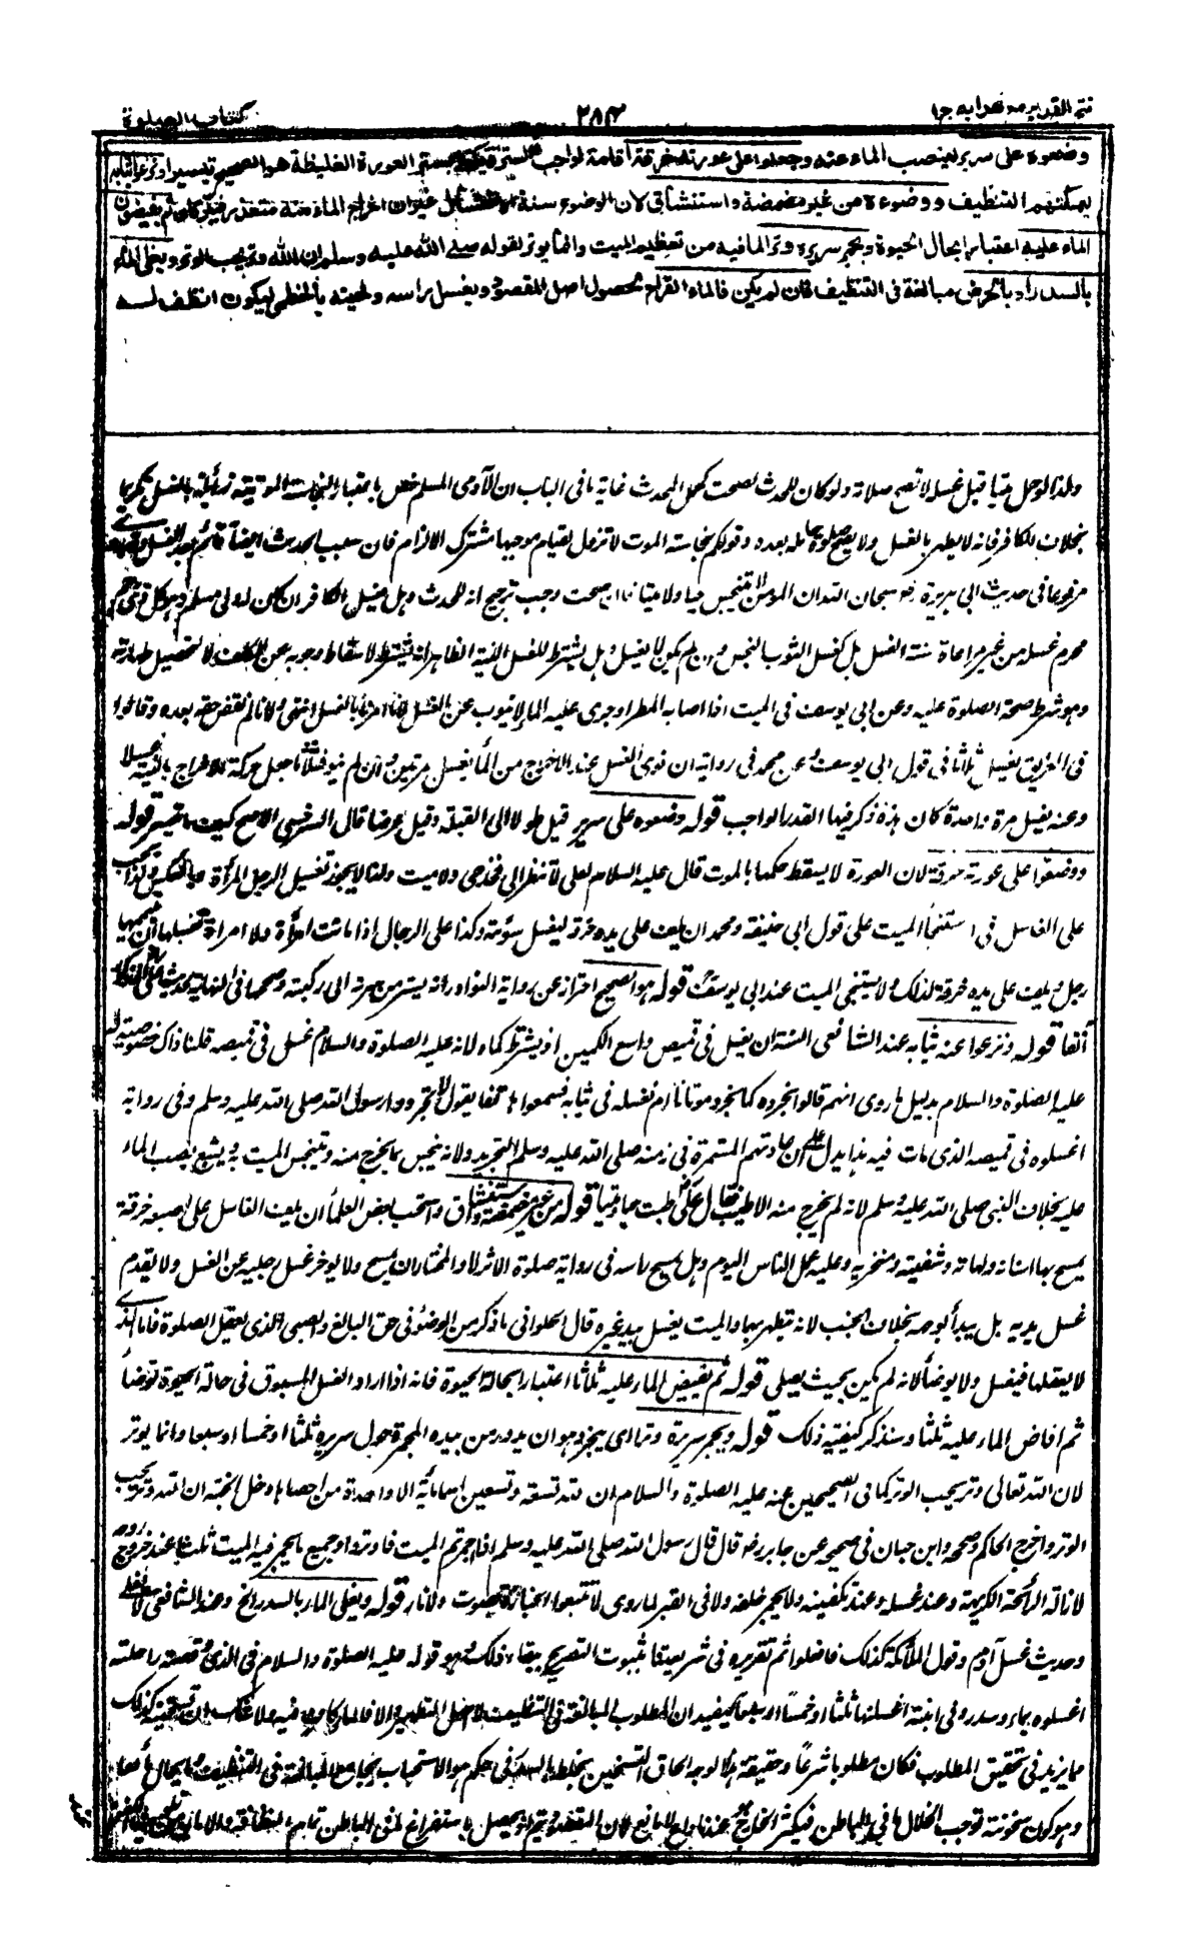 فتح القدير مع هدايه ج ١
٢٨٢
كتاب الصلوة
وضعوه على سرير لينصب الماء عنه وجعلوا على عورته خرقة اقامة لواجب الستر ويكتفى بستر العورة الغليظة هو الصحيح تيسيرا ونزعوا ثيابه
ليمكنهم التنظيف ووضوءه من غير مضمضة واستنشاق لان الوضوء سنة الاغتسال غير ان اخراج الماء منه متعذر فيتركان ثم يفيضون
الماء عليه اعتبارا بحال الحيوة ويجمر سريره وترا لما فيه من تعظيم الميت وانما يوتر لقوله صلى الله عليه وسلم ان الله وتر يحب الوتر ويغلى الماء
بالسدر او بالحرض مبالغة فى التنظيف فان لم يكن فالماء القراح لحصول اصل المقصود ويغسل راسه ولحيته بالخطمى ليكون انظف له
ولذا لو حمل ميتا قبل غسله لا تصح صلاته ولو كان للحدث لصحت كحمل المحدث غاية ما فى الباب ان الآدمى المسلم خص باعتبار النجاسة الموتية زائلة بالغسل تكريما
بخلاف الكافر فانه لا يطهر بالغسل ولا يصح صلوة حامله بعده وقولكم نجاسة الموت لا تزول لقيام موجبها مشترك الالزام فان سبب الحدث ايضا قائم بعد الغسل
فى حديث ابى هريرة رض سبحان الله ان المؤمن لا ينجس حيا ولا ميتا فان صحت وجب ترجيح انه للحدث وهل يغسل الكافر ان كان له ولى مسلم
محرم غسله من غير مراعاة سنة الغسل بل كغسل الثوب النجس وان لم يكن لا يغسل وهل يشترط للغسل النية الظاهر انه يشترط لاسقاط وجوبه عن المكلف لا لتحصيل طهارته
وهو شرط صحة الصلوة عليه وعن ابى يوسف فى الميت اذا اصابه المطر او جرى عليه الماء لا ينوب عن الغسل لانا امرنا بالغسل انتهى ولانا لم نقض حقه بعده وقالوا
فى الغريق يغسل ثلاثا فى قول ابى يوسف وعن محمد فى رواية ان نوى الغسل عند الاخراج من الماء يغسل مرتين وان لم ينو فثلاثا جعل حركة الاخراج بالنية غسلة
وعنه يغسل مرة واحدة كان هذه ذكر فيها القدر الواجب قوله وضعوه على سرير قيل طولا الى القبلة وقيل عرضا قال السرخسى الاصح كيف ما تيسر قوله
ووضعوا على عورته خرقة لان العورة لا يسقط حكمها بالموت قال عليه السلام لعلى لا تنظر الى فخذ حى ولا ميت ولذا لا يجوز تغسيل الرجل المرأة وبالعكس ولذا يجب
على الغاسل فى استنجاء الميت على قول ابى حنيفة ومحمد ان يلف على يده خرقة ليغسل سوءته وكذا على الرجال اذا ماتت امرأة ولا امراة تغسلها ان ييممها
رجل ويلف على يده خرقة لذلك ولا يستنجى الميت عند ابى يوسف قوله هو الصحيح احتراز عن رواية النوادر انه يستر من سرته الى ركبته وصححها فى النهاية لحديث على المذكور
آنفا قوله ونزعوا عنه ثيابه عند الشافعى السنة ان يغسل فى قميص واسع الكمين او يشترط كماه لانه عليه الصلوة والسلام غسل فى قميصه قلنا ذاك خصوصية له
عليه الصلوة والسلام بدليل ما روى انهم قالوا نجرده كما نجرد موتانا ام نغسله فى ثيابه فسمعوا هاتفا يقول لا تجردوا رسول الله صلى الله عليه وسلم وفى رواية
اغسلوه فى قميصه الذى مات فيه فهذا يدل على ان عادتهم المستمرة فى زمنه صلى الله عليه وسلم التجريد ولانه ينجس بما يخرج منه ويتنجس الميت به ويشيع بصب الماء
عليه بخلاف النبى صلى الله عليه وسلم لانه لم يخرج منه الا طيب فقال على رض طبت حيا وميتا قوله من غير مضمضة واستنشاق واستحب بعض العلماء ان يلف الغاسل على اصبعه خرقة
يمسح بها اسنانه ولهاته وشفتيه ومنخريه وعليه عمل الناس اليوم وهل يمسح راسه فى رواية صلوة الاثر لا والمختار ان يمسح ولا يوخر غسل رجليه عن الغسل ولا يقدم
غسل يديه بل يبدأ بوجهه بخلاف الجنب لانه يتطهر بهما والميت يغسل بيد غيره قال الحلوانى ما ذكر من الوضوء فى حق البالغ والصبى الذى يعقل الصلوة فاما الذى
لا يعقلها فيغسل ولا يوضأ لانه لم يكن بحيث يصلى قوله ثم يفيض الماء عليه ثلاثا اعتبارا بحالة الحيوة فانه اذا اراد الغسل المسبوق فى حالة الحيوة توضأ
ثم افاض الماء عليه ثلثا وسنذكر كيفية ذلك قوله ويجمر سريره وترا اى يبخر وهو ان يدور من بيده المجمرة حول سريره ثلثا او خمسا او سبعا وانما يوتر
لان الله تعالى وتر يحب الوتر كما فى الصحيحين عنه عليه الصلوة والسلام ان لله تسعة وتسعين اسما مائة الا واحدة من احصاها دخل الجنة ان الله وتر يحب
الوتر واخرج الحاكم وصححه وابن حبان فى صحيحه عن جابر رض قال قال رسول الله صلى الله عليه وسلم اذا جمرتم الميت فاوتروا وجميع ما يجمر فيه الميت ثلث عند خروج روحه
لازالة الرائحة الكريهة وعند غسله وعند تكفينه ولا يجمر خلفه ولا فى القبر لما روى لا تتبعوا الجنازة بصوت ولا نار قوله ويغلى الماء بالسدر الخ وعند الشافعى لا يغلى
وحديث غسل آدم وقول الملائكة كذلك فافعلوا ثم تقريره فى شريعتنا بثبوت التصريح ببقاء ذلك وهو قوله عليه الصلوة والسلام فى الذى وقصته راحلته
اغسلوه بماء وسدر وفى ابنته اغسلنها ثلثا او خمسا او سبعا يفيد ان المطلوب المبالغة فى التنظيف لا اصل التطهير والا فالماء كاف فيه ولا شك ان تسخينه كذلك
مما يزيد فى تحقيق المطلوب فكان مطلوبا شرعا وحقيقة هذا الوجه الحاق التسخين بخلطه بالسدر فى حكم هو الاستحباب بجامع المبالغة فى التنظيف وما يخال مانعا
وهو كون سخونته توجب انحلال ما فى الباطن فيكثر الخارج هو عندنا داع لا مانع لان المقصود يتم اذ يحصل باستفراغ ما فى الباطن تمام النظافة والامان